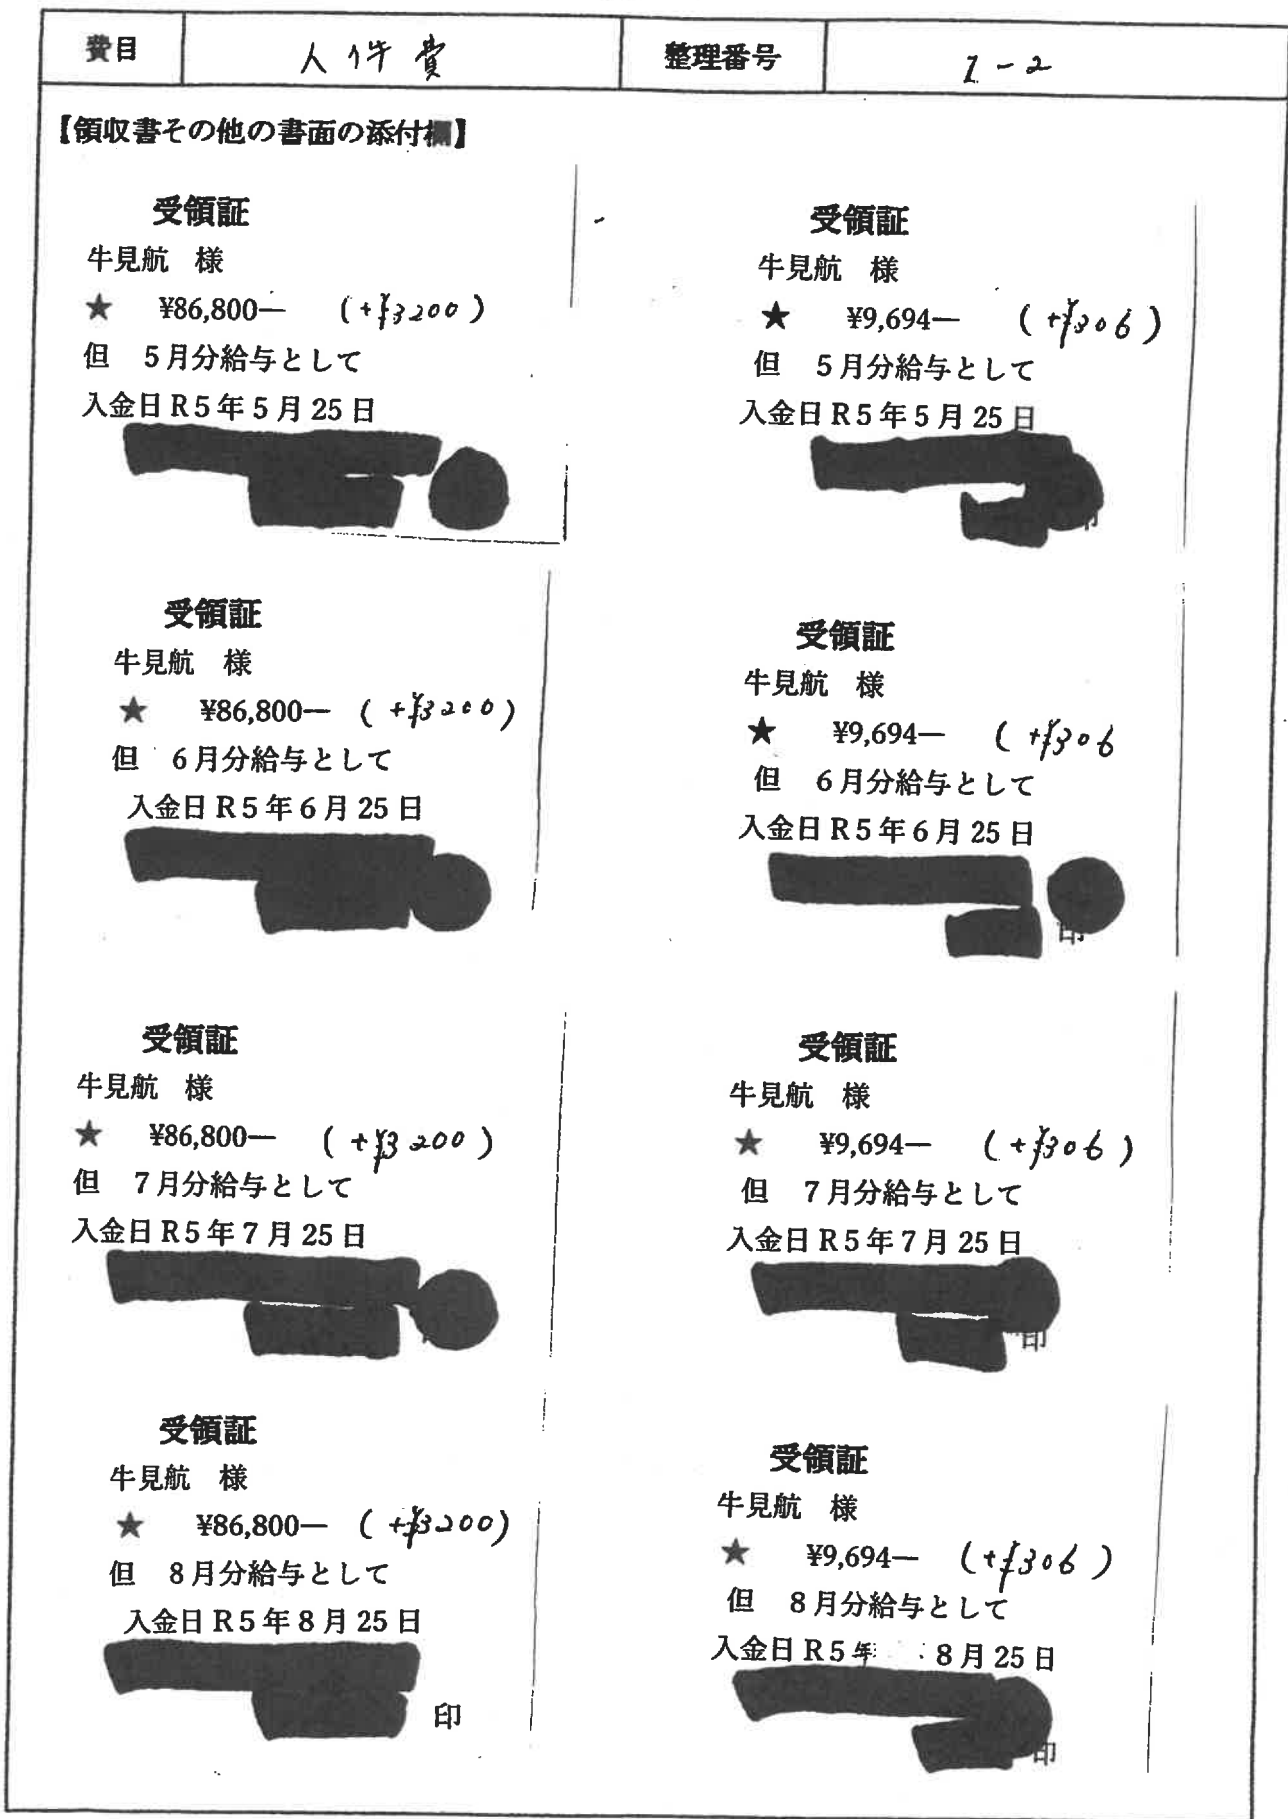 費目 人件費 整理番号 1-2
【領収書その他の書面の添付欄】
受領証
牛見航 様
★ ¥86,800― (+¥3200)
但 5月分給与として
入金日R5年5月25日
受領証
牛見航 様
★ ¥9,694― (+¥306)
但 5月分給与として
入金日R5年5月25日
受領証
牛見航 様
★ ¥86,800― (+¥3200)
但 6月分給与として
入金日R5年6月25日
受領証
牛見航 様
★ ¥9,694― (+¥306
但 6月分給与として
入金日R5年6月25日
印
受領証
牛見航 様
★ ¥86,800― (+¥3200)
但 7月分給与として
入金日R5年7月25日
受領証
牛見航 様
★ ¥9,694― (+¥306)
但 7月分給与として
入金日R5年7月25日
印
受領証
牛見航 様
★ ¥86,800― (+¥3200)
但 8月分給与として
入金日R5年8月25日
印
受領証
牛見航 様
★ ¥9,694― (+¥306)
但 8月分給与として
入金日R5年 8月25日
印